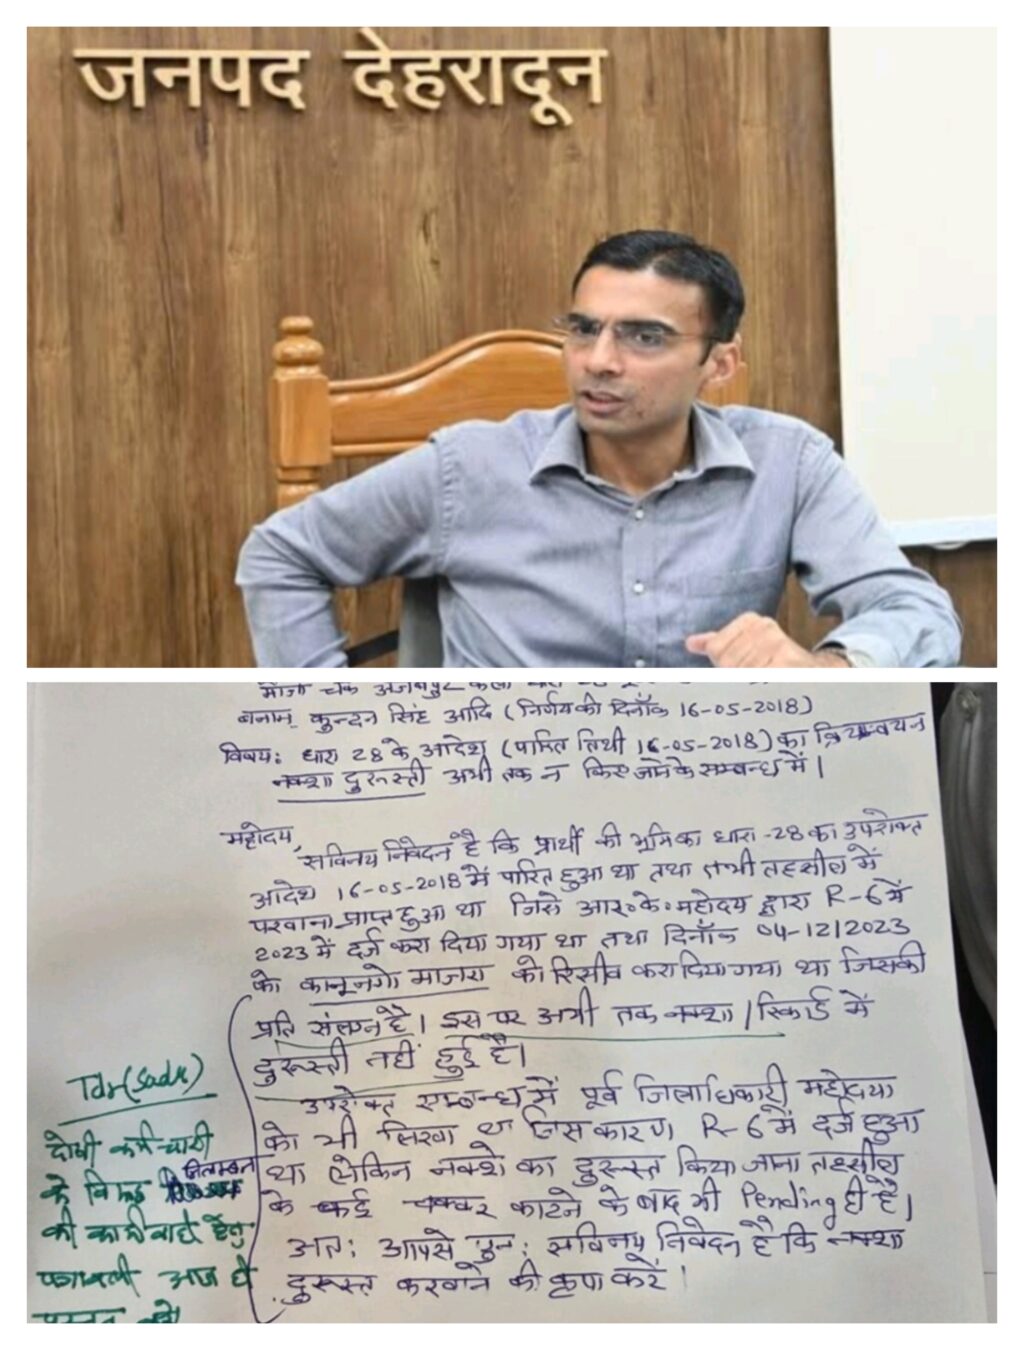 जनपद देहरादून
मौजा चक अजबपुर कला
बनाम् कुन्दन सिंह आदि (निर्णय की दिनाँक 16-05-2018)
विषय: धारा 28 के आदेश (पारित तिथी 16-05-2018) का क्रियान्वयन
नक्शा दुरूस्ती अभी तक न किए जाने के सम्बन्ध में।
महोदय,
सविनय निवेदन है कि प्रार्थी की भूमि का धारा-28 का उपरोक्त
आदेश 16-05-2018 में पारित हुआ था तथा तभी तहसील में
परवाना प्राप्त हुआ था जिसे आर॰के॰ महोदय द्वारा R-6 में
2023 में दर्ज करा दिया गया था तथा दिनाँक 04-12/2023
को कानूनगो माजरा को रिसीव करा दिया गया था जिसकी
प्रति संलग्न है। इस पर अभी तक नक्शा/रिकार्ड में
दुरूस्ती नहीं हुई है।
उपरोक्त सम्बन्ध में पूर्व जिलाधिकारी महोदया
को भी लिखा था जिस कारण R-6 में दर्ज हुआ
था लेकिन नक्शे का दुरूस्त किया जाना तहसील
के कई चक्कर काटने के बाद भी Pending ही है।
अतः आपसे पुनः सविनय निवेदन है कि नक्शा
दुरूस्त करवाने की कृपा करें।
Tdr (Sadr)
दोषी कर्मचारी
के विरूद्ध निलम्बन
की कार्यवाही हेतु
पत्रावली आज ही